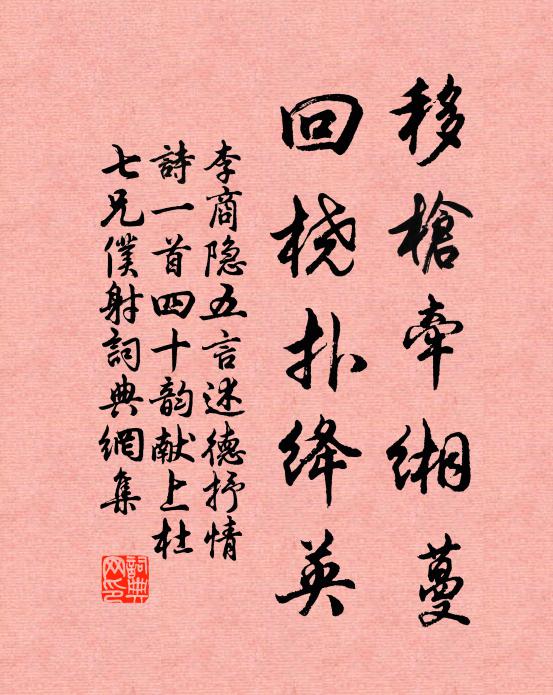 移槍牽缃蔓
回桡扑绛英
李商隐五言述德抒情
詩一首四十韵献上杜
七兄僕射詞典網集
詞典
网印